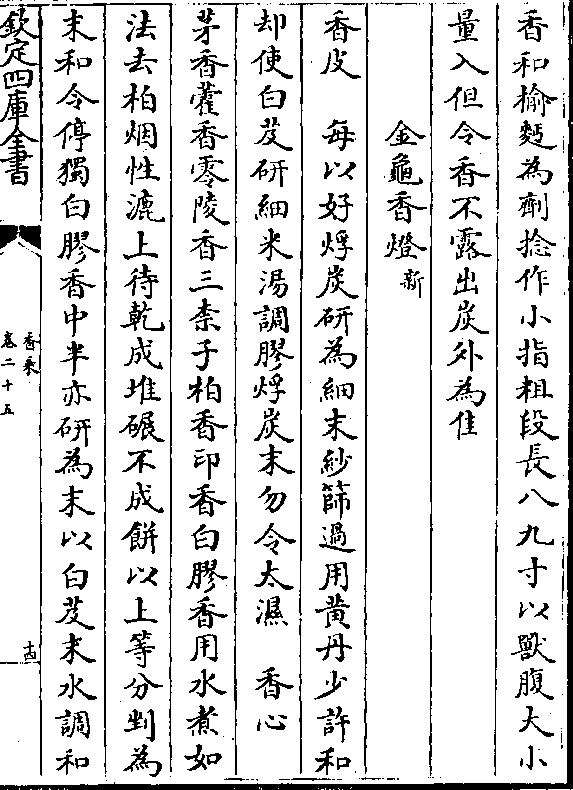 香和榆麪為劑捻作小指粗段長八九寸以獸腹大小
量入但令香不露出炭外為佳
金龜香燈新
香皮　每以好烰炭研為細末紗篩過用黃丹少許和
却使白芨研細米湯調膠烰炭末勿令太濕　香心
茅香藿香零陵香三柰子柏香印香白膠香用水煮如
法去柏烟性漉上待乾成堆碾不成餅以上等分剉為
末和令停獨白膠香中半亦研為末以白芨末水調和
欽定四庫全書
香乘
卷二十五
十四